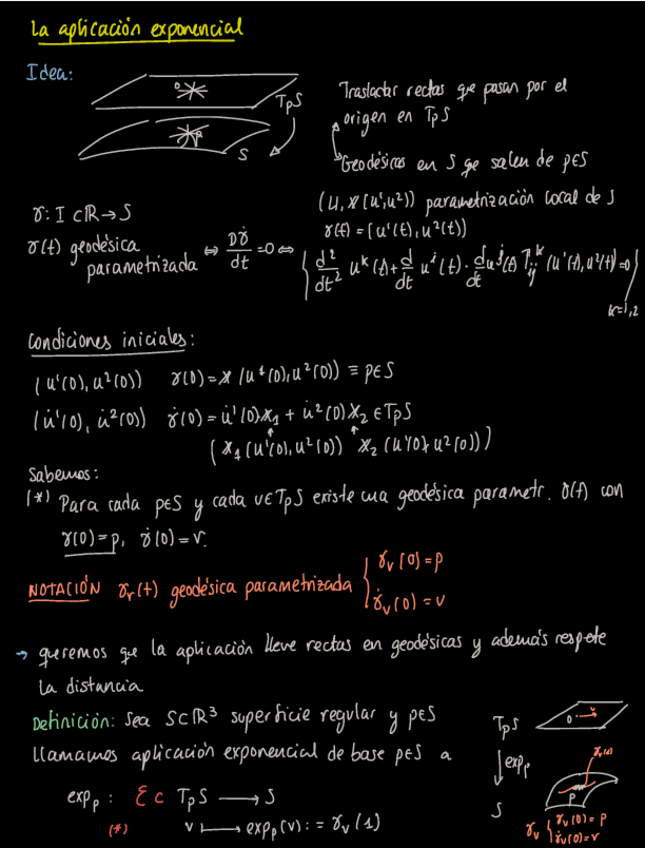 La aplicación exponencial
Idea:
0
TpS
p
S
Trasladar rectas que pasan por el
origen en TpS
Geodésicas en S que salen de p∈S
(U, X(u¹,u²)) parametrización local de S
γ: I ⊂ ℝ → S
γ(t) = (u¹(t), u²(t))
γ(t) geodésica parametrizada ⇔ Dγ̇/dt = 0 ⇔ { d²/dt² uᵏ(t) + d/dt uⁱ(t) · d/dt uʲ(t) Γᵢⱼᵏ (u¹(t), u²(t)) = 0 }
k=1,2
Condiciones iniciales:
(u¹(0), u²(0)) γ(0) = X(u¹(0), u²(0)) ≡ p∈S
(u̇¹(0), u̇²(0)) γ̇(0) = u̇¹(0)X₁ + u̇²(0)X₂ ∈ TpS
(X₁(u¹(0), u²(0)) X₂(u¹(0), u²(0)))
Sabemos:
(*) Para cada p∈S y cada v∈TpS existe una geodésica parametr. γ(t) con
γ(0) = p, γ̇(0) = v.
NOTACIÓN γᵥ(t) geodésica parametrizada { γᵥ(0) = p
γ̇ᵥ(0) = v
→ queremos que la aplicación lleve rectas en geodésicas y además respete
la distancia
Definición: Sea S⊂ℝ³ superficie regular y p∈S
llamamos aplicación exponencial de base p∈S a
expₚ : Ɛ ⊂ TpS → S
(*) v ↦ expₚ(v) := γᵥ(1)
TpS
0 v
expₚ
γᵥ(1)
S
p
γᵥ { γᵥ(0) = p
γ̇ᵥ(0) = v